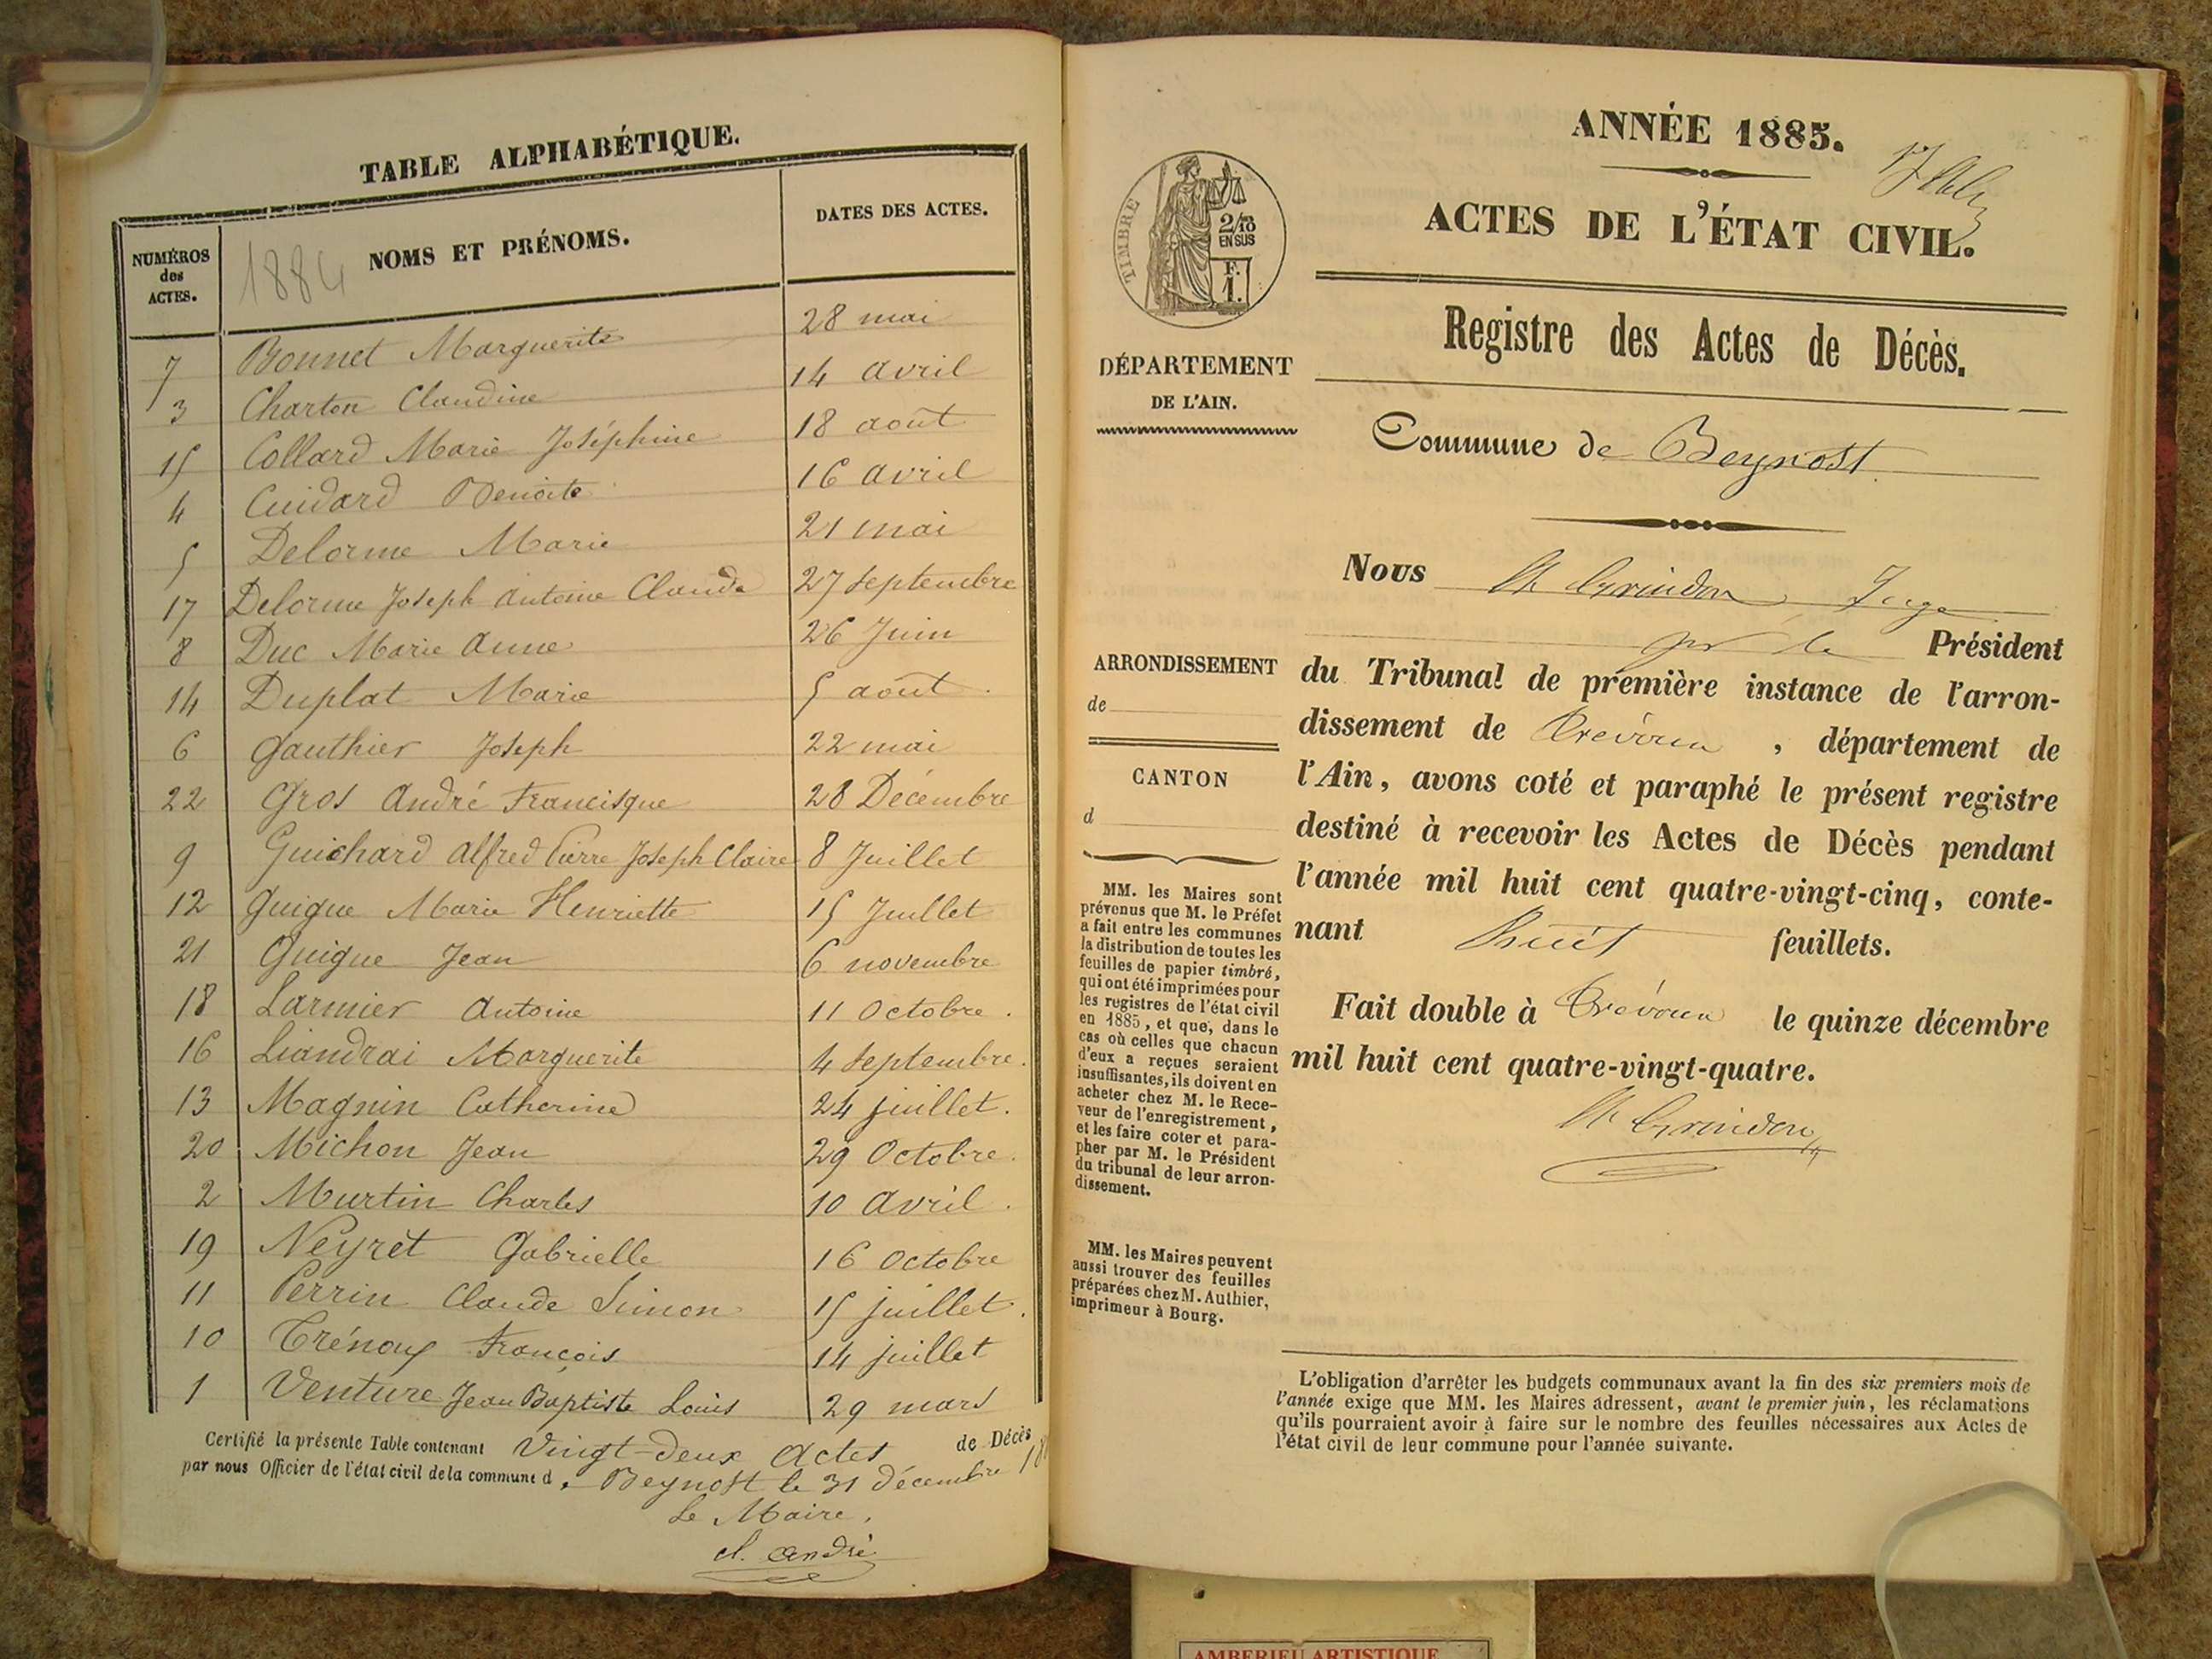 TABLE ALPHABÉTIQUE.
NUMÉROS des ACTES.
1884 NOMS ET PRÉNOMS.
DATES DES ACTES.
7 Bonnet Marguerite 28 mai
3 Charton Claudine 14 avril
15 Collard Marie Joséphine 18 août
4 Cuidard Benoite 16 avril
5 Delorme Marie 21 mai
17 Delorme Joseph Antoine Claude 27 septembre
8 Duc Marie Anne 26 Juin
14 Duplat Marie 5 août.
6 Gauthier Joseph 22 mai
22 Gros André Francisque 28 Décembre
9 Guichard Alfred Pierre Joseph Claire 8 Juillet
12 Guigue Marie Henriette 15 Juillet
21 Guigue Jean 6 novembre
18 Larmier Antoine 11 Octobre.
16 Liandrai Marguerite 4 Septembre.
13 Magnin Catherine 24 juillet.
20 Michon Jean 29 Octobre.
2 Murtin Charles 10 avril.
19 Neyret Gabrielle 16 Octobre
11 Perrin Claude Simon 15 juillet.
10 Trénoy François 14 juillet
1 Venture Jean Baptiste Louis 29 mars
Certifié la présente Table contenant Vingt-deux Actes de Décès
par nous Officier de l'état civil de la commune d. Beynost le 31 décembre 18
Le Maire,
cl. André
ANNÉE 1885.
ACTES DE L'ÉTAT CIVIL.
TIMBRE
2/10
EN SUS
F.
1.
DÉPARTEMENT
DE L'AIN.
Registre des Actes de Décès.
Commune de Beynost
Nous Grindon Juge
pr le Président
du Tribunal de première instance de l'arron-
dissement de Trévoux, département de
l'Ain, avons coté et paraphé le présent registre
destiné à recevoir les Actes de Décès pendant
l'année mil huit cent quatre-vingt-cinq, conte-
nant huit feuillets.
Fait double à Trévoux le quinze décembre
mil huit cent quatre-vingt-quatre.
Grindon
ARRONDISSEMENT
de
CANTON
d
MM. les Maires sont
prévenus que M. le Préfet
a fait entre les communes
la distribution de toutes les
feuilles de papier timbré,
qui ont été imprimées pour
les registres de l'état civil
en 1885, et que, dans le
cas où celles que chacun
d'eux a reçues seraient
insuffisantes, ils doivent en
acheter chez M. le Rece-
veur de l'enregistrement,
et les faire coter et para-
pher par M. le Président
du tribunal de leur arron-
dissement.
MM. les Maires peuvent
aussi trouver des feuilles
préparées chez M. Authier,
imprimeur à Bourg.
L'obligation d'arrêter les budgets communaux avant la fin des six premiers mois de
l'année exige que MM. les Maires adressent, avant le premier juin, les réclamations
qu'ils pourraient avoir à faire sur le nombre des feuilles nécessaires aux Actes de
l'état civil de leur commune pour l'année suivante.
AMBERIEU ARTISTIQUE